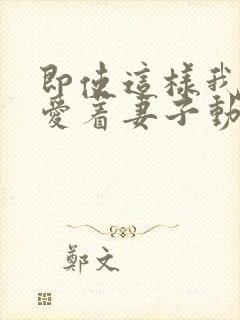 即使這樣我
愛着妻子動
鄭文